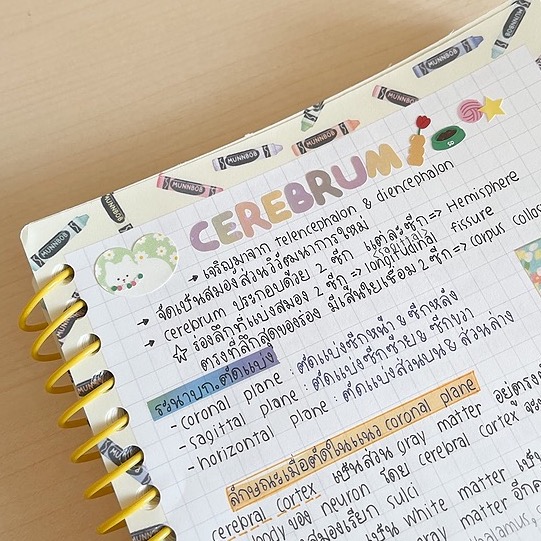 MUNNBOB
MUNNBOB
MUNNBOB
MUNNBOB
MUNNBOB
CEREBRUM
→ เจริญมาจาก telencephalon & diencephalon
→ จัดเป็นสมองส่วนวิวัฒนาการใหม่
→ cerebrum ประกอบด้วย 2 ซีก แต่ละซีก => Hemisphere
☆ ร่องลึกที่แบ่งสมอง 2 ซีก => longitudinal fissure
ตรงที่ลึกสุดของร่อง มีเส้นใยเชื่อม 2 ซีก => corpus
ระนาบการตัดแบ่ง
- coronal plane : ตัดแบ่งซีกหน้า & ซีกหลัง
- sagittal plane : ตัดแบ่งซีกซ้าย & ซีกขวา
- horizontal plane : ตัดแบ่งส่วนบน & ส่วนล่าง
ลักษณะเมื่อตัดในแนว coronal plane
cerebral cortex เป็นส่วน gray matter อยู่ตรง
body ของ neuron โดย cerebral cortex
สมองเรียก sulci
เป็น white matter
gray matter อีก
thalamus,